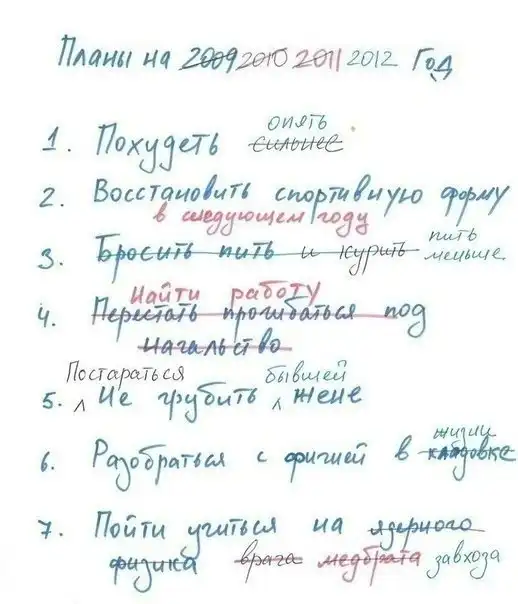 Планы на 2009 2010 2011 2012 Год
опять
1. Похудеть сильнее
2. Восстановить спортивную форму
в следующем году
пить
3. Бросить пить и курить меньше
Найти работу
4. Перестать прогибаться под
начальство
Постараться бывшей
5. Не грубить жене
жизни
6. Разобраться с фигнёй в кладовке
7. Пойти учиться на ядерного
физика врача медбрата завхоза